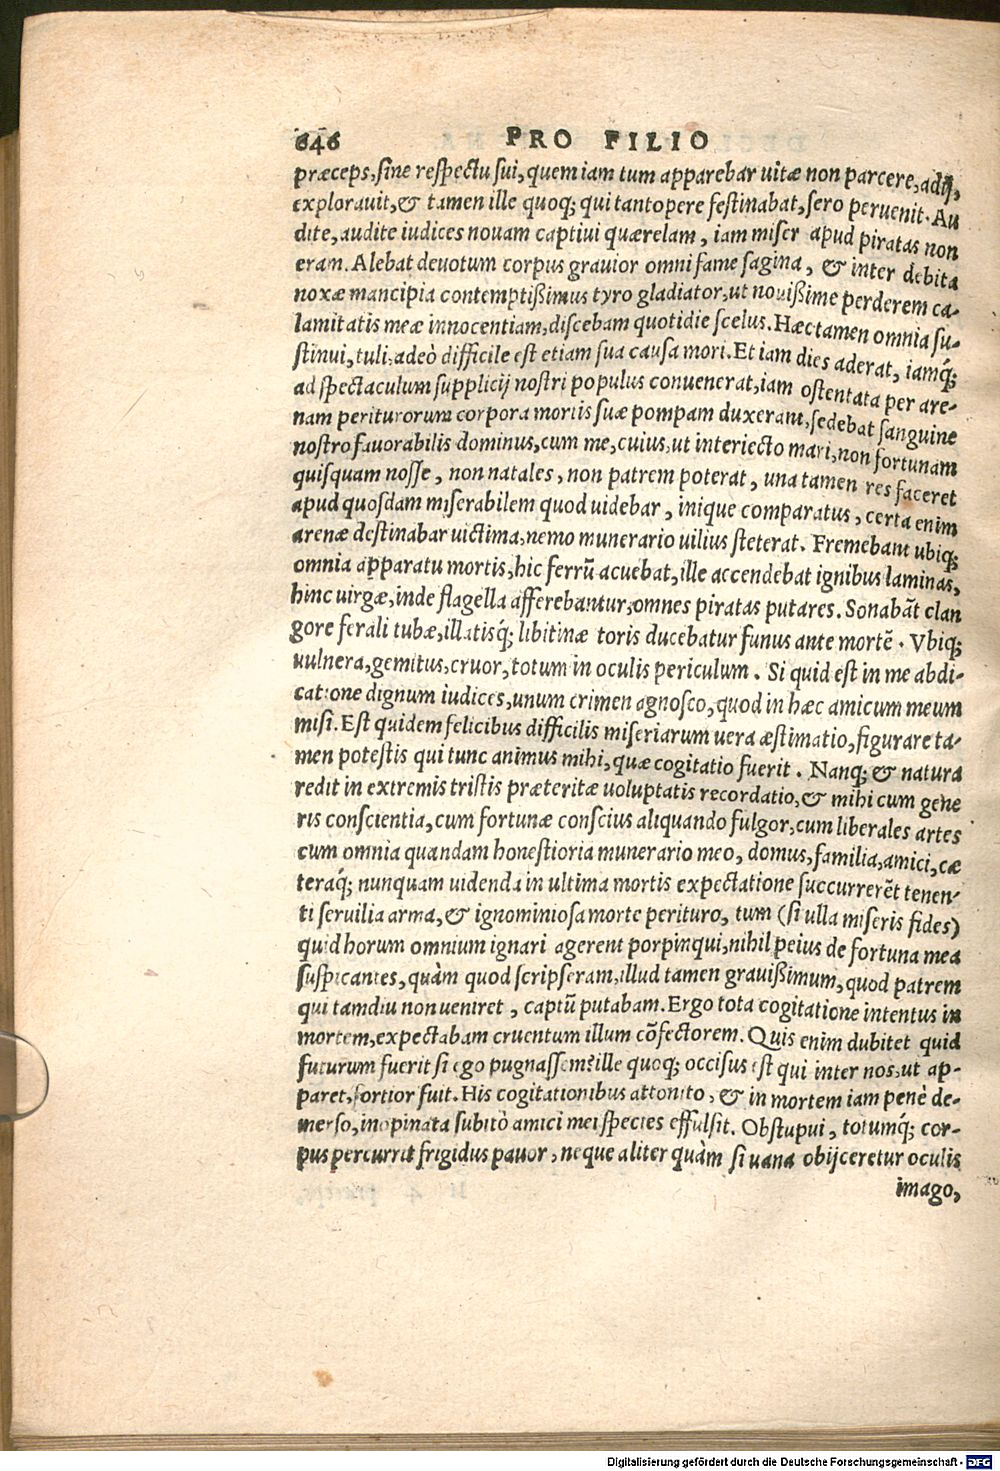 646 PRO FILIO
præceps, sine respectu sui, quem iam tum apparebar uitæ non parcere, adij,
explorauit, & tamen ille quoq; qui tantopere festinabat, sero peruenit. Au
dite, audite iudices nouam captiui quærelam, iam miser apud piratas non
eram. Alebat deuotum corpus grauior omni fame sagina, & inter debita
noxæ mancipia contemptißimus tyro gladiator, ut nouißime perderem ca-
lamitatis meæ innocentiam, discebam quotidie scelus. Hæc tamen omnia su-
stinui, tuli, adeò difficile est etiam sua causa mori. Et iam dies aderat, iamq́;
ad spectaculum supplicij nostri populus conuenerat, iam ostentata per are-
nam periturorum corpora mortis suæ pompam duxerant, sedebat sanguine
nostro fauorabilis dominus, cum me, cuius, ut interiecto mari, non fortunam
quisquam nosse, non natales, non patrem poterat, una tamen res faceret
apud quosdam miserabilem quod uidebar, inique comparatus, certa enim
arenæ destinabar uictima, nemo munerario uilius steterat. Fremebant ubiq;
omnia apparatu mortis, hic ferrũ acuebat, ille accendebat ignibus laminas,
hinc uirgæ, inde flagella afferebantur, omnes piratas putares. Sonabãt clan
gore ferali tubæ, illatisq́; libitinæ toris ducebatur funus ante mortẽ. Vbiq;
uulnera, gemitus, cruor, totum in oculis periculum. Si quid est in me abdi-
catione dignum iudices, unum crimen agnosco, quod in hæc amicum meum
misi. Est quidem felicibus difficilis miseriarum uera æstimatio, figurare ta-
men potestis qui tunc animus mihi, quæ cogitatio fuerit. Nanq; & natura
redit in extremis tristis præteritæ uoluptatis recordatio, & mihi cum gene
ris conscientia, cum fortunæ conscius aliquando fulgor, cum liberales artes
cum omnia quandam honestiora munerario meo, domus, familia, amici, cæ
teraq́; nunquam uidenda in ultima mortis expectatione succurrerẽt tenen-
ti seruilia arma, & ignominiosa morte perituro, tum (si ulla miseris fides)
quid horum omnium ignari agerent porpinqui, nihil peius de fortuna mea
suspicantes, quàm quod scripseram, illud tamen grauißimum, quod patrem
qui tamdiu non ueniret, captũ putabam. Ergo tota cogitatione intentus in
mortem, expectabam cruentum illum cõfectorem. Quis enim dubitet quid
futurum fuerit si ego pugnassem? ille quoq; occisus est qui inter nos, ut ap-
paret, fortior fuit. His cogitationibus attonito, & in mortem iam penè de-
merso, inopinata subitò amici mei species effulsit. Obstupui, totumq́; cor-
pus percurrit frigidus pauor, neque aliter quàm si uana obijceretur oculis
imago,
Digitalisierung gefördert durch die Deutsche Forschungsgemeinschaft - DFG